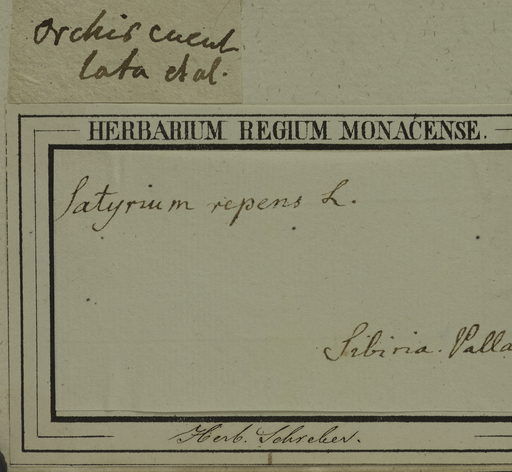 Orchis cucul
lata et al.
HERBARIUM REGIUM MONACENSE.
Satyrium repens L.
Sibiria. Palla
Herb. Schreber.